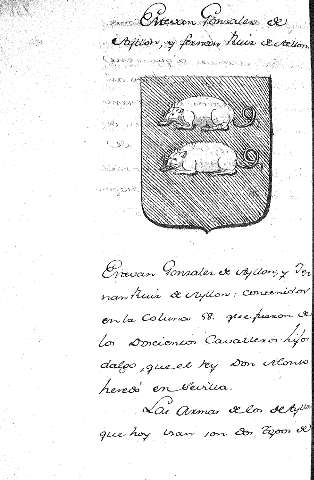 Estevan Gonzalez de
Ayllon, y fernan Ruiz de Ayllon.
Estevan Gonzalez de Ayllon, y Fer
nan Ruiz de Ayllon: contenidos
en la Coluna 58. que fueron de
los Doscientos Cavalleros hijos
dalgo, que el Rey Don Alonso
heredó en Sevilla.
Las Armas de los de Ayllon
que hoy usan son dos de